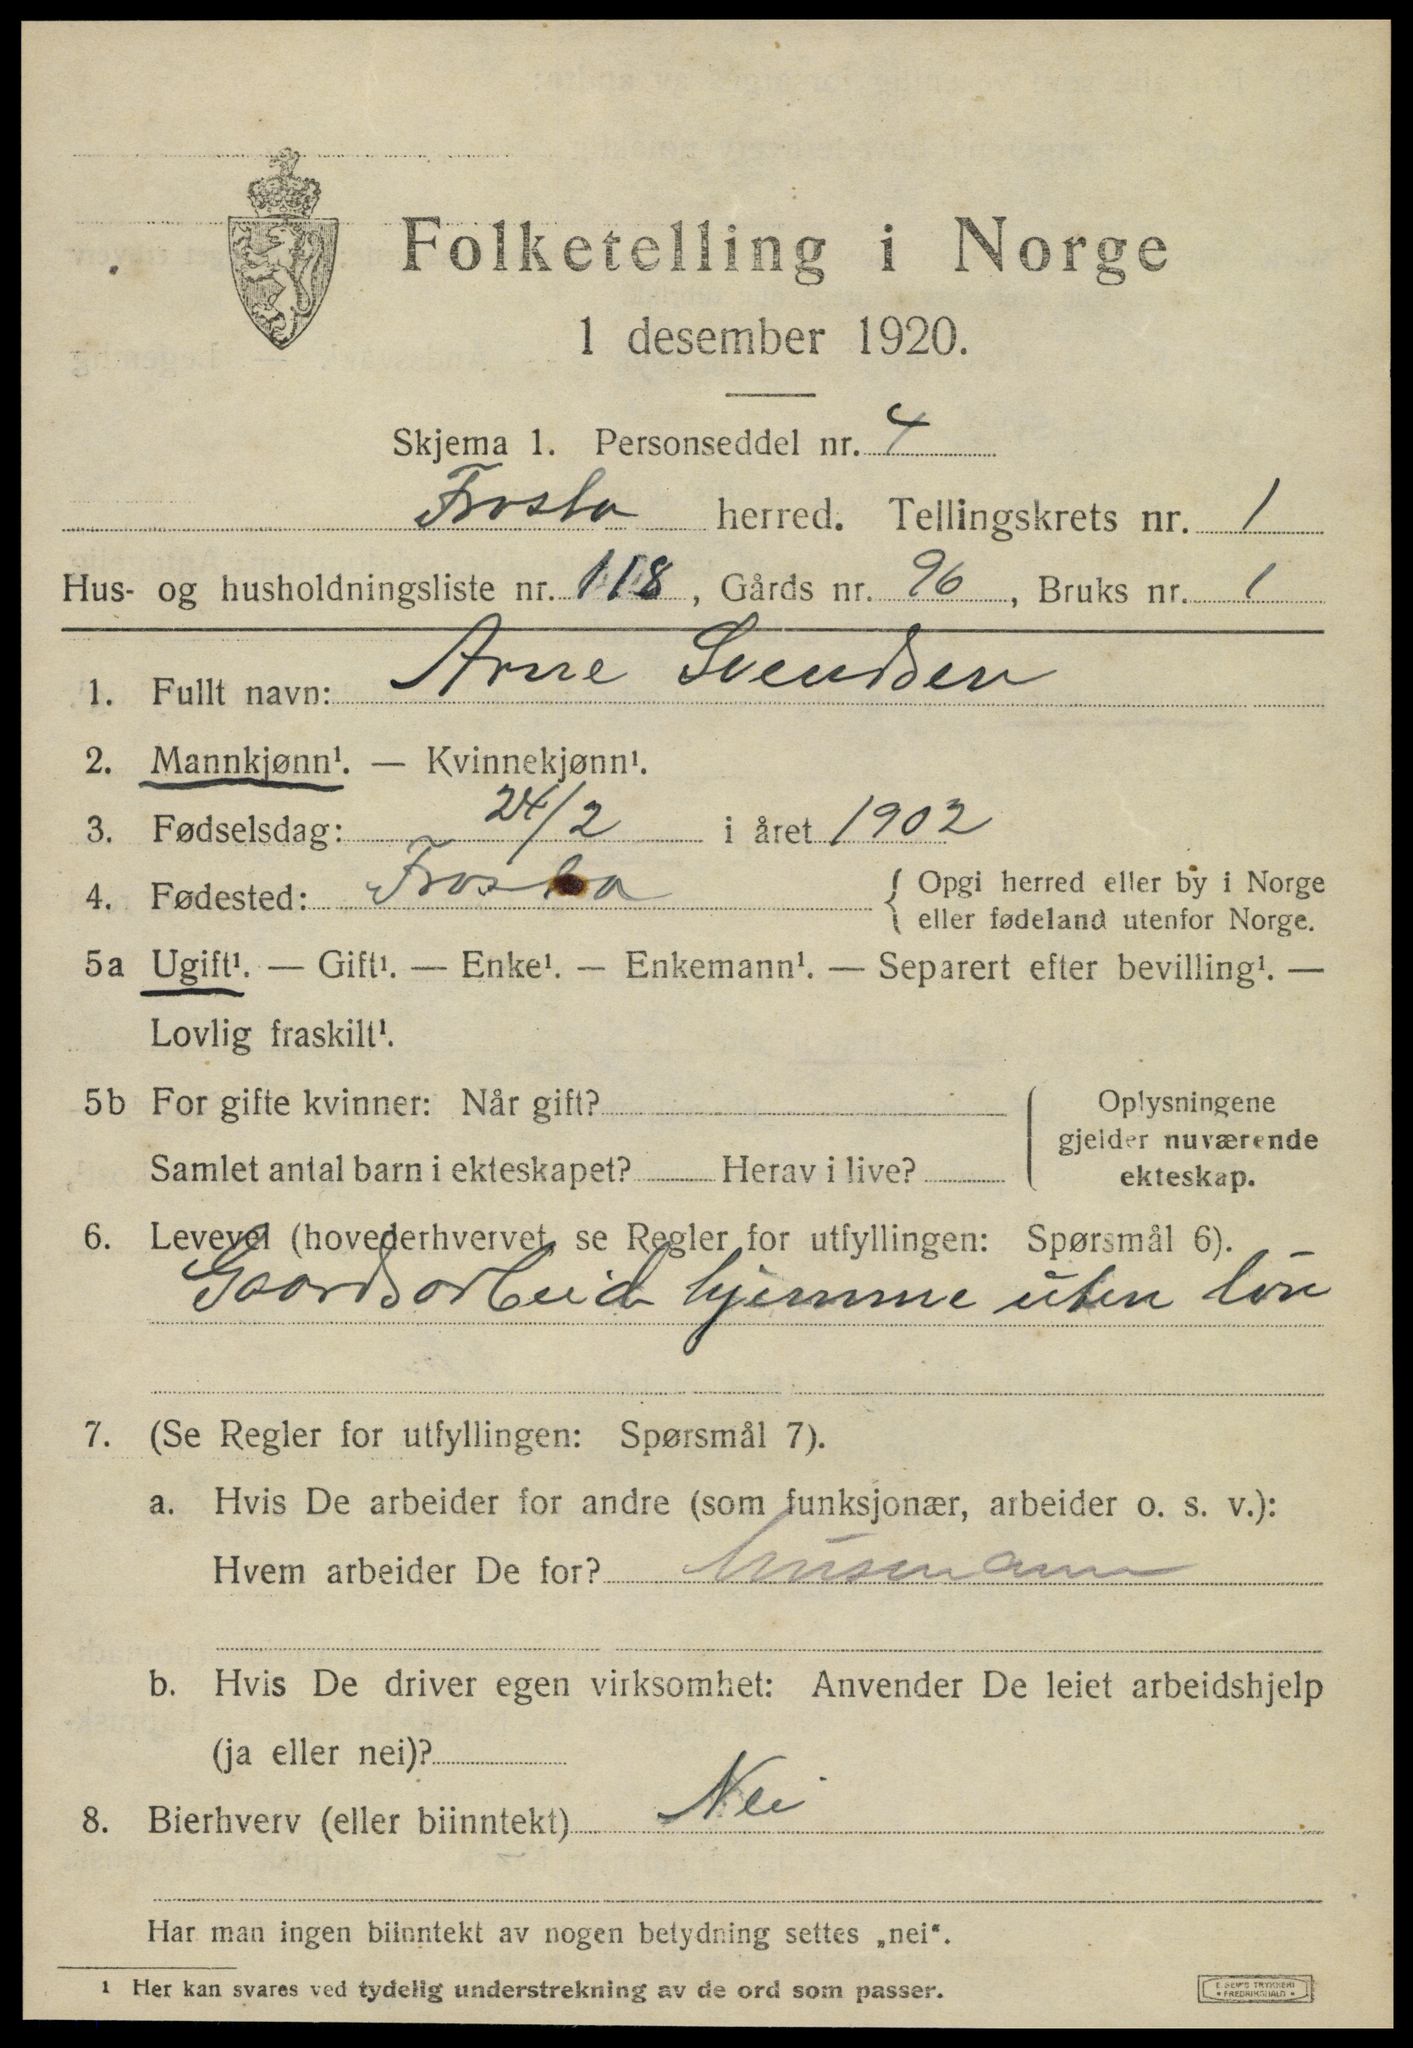 Folketelling i Norge
1 desember 1920.
Skjema 1. Personseddel nr. 4
Frosta herred. Tellingskrets nr. 1
Hus- og husholdningsliste nr. 118, Gårds nr. 96, Bruks nr. 1
1. Fullt navn: Arne Svendsen
2. Mannkjønn¹. — Kvinnekjønn¹.
3. Fødselsdag: 24/2 i året 1902
4. Fødested: Frosta { Opgi herred eller by i Norge
eller fødeland utenfor Norge.
5a Ugift¹. — Gift¹. — Enke¹. — Enkemann¹. — Separert efter bevilling¹. —
Lovlig fraskilt¹.
5b For gifte kvinner: Når gift? Oplysningene
gjelder nuværende
Samlet antal barn i ekteskapet? Herav i live? ekteskap.
6. Levevei (hovederhvervet, se Regler for utfyllingen: Spørsmål 6).
Gaardsarbeide hjemme uten løn
7. (Se Regler for utfyllingen: Spørsmål 7).
a. Hvis De arbeider for andre (som funksjonær, arbeider o. s. v.):
Hvem arbeider De for?
b. Hvis De driver egen virksomhet: Anvender De leiet arbeidshjelp
(ja eller nei)?
8. Bierhverv (eller biinntekt) Nei
Har man ingen biinntekt av nogen betydning settes „nei“.
1 Her kan svares ved tydelig understrekning av de ord som passer.
E. SEM'S TRYKKERI
• FREDRIKSHALD •